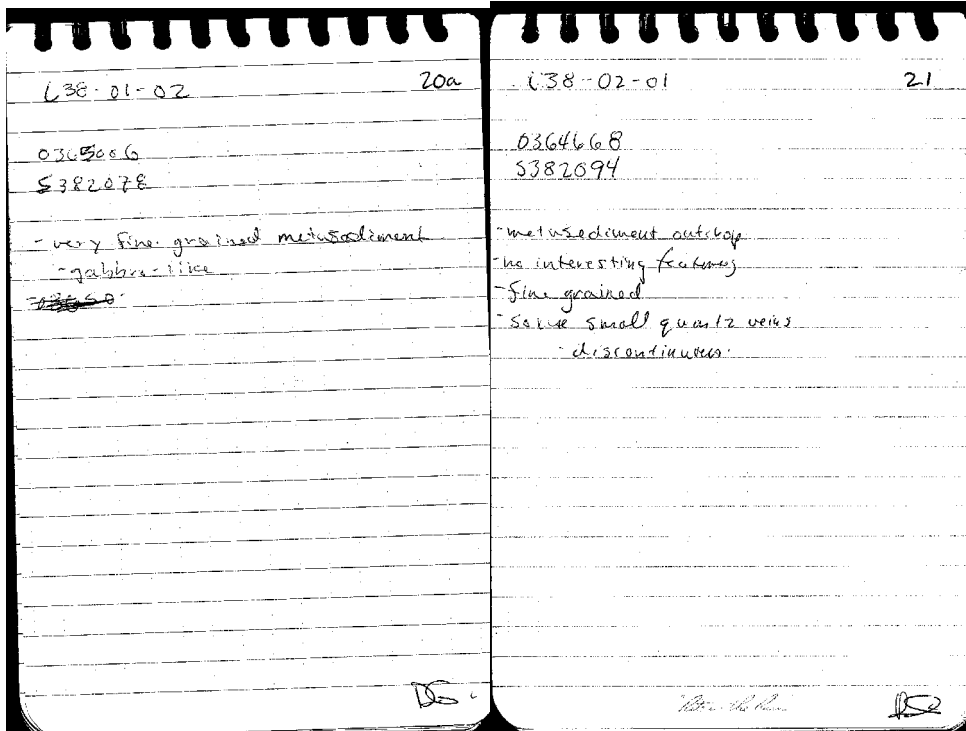 L38-01-02 20a
0365006
5382078
- very fine grained metasediment
- gabbro-like
L38-02-01 21
0364668
5382094
- metasediment outcrop
- no interesting features
- fine grained
- some small quartz veins
- discontinuous.
DS
"Rite in the Rain"
DS